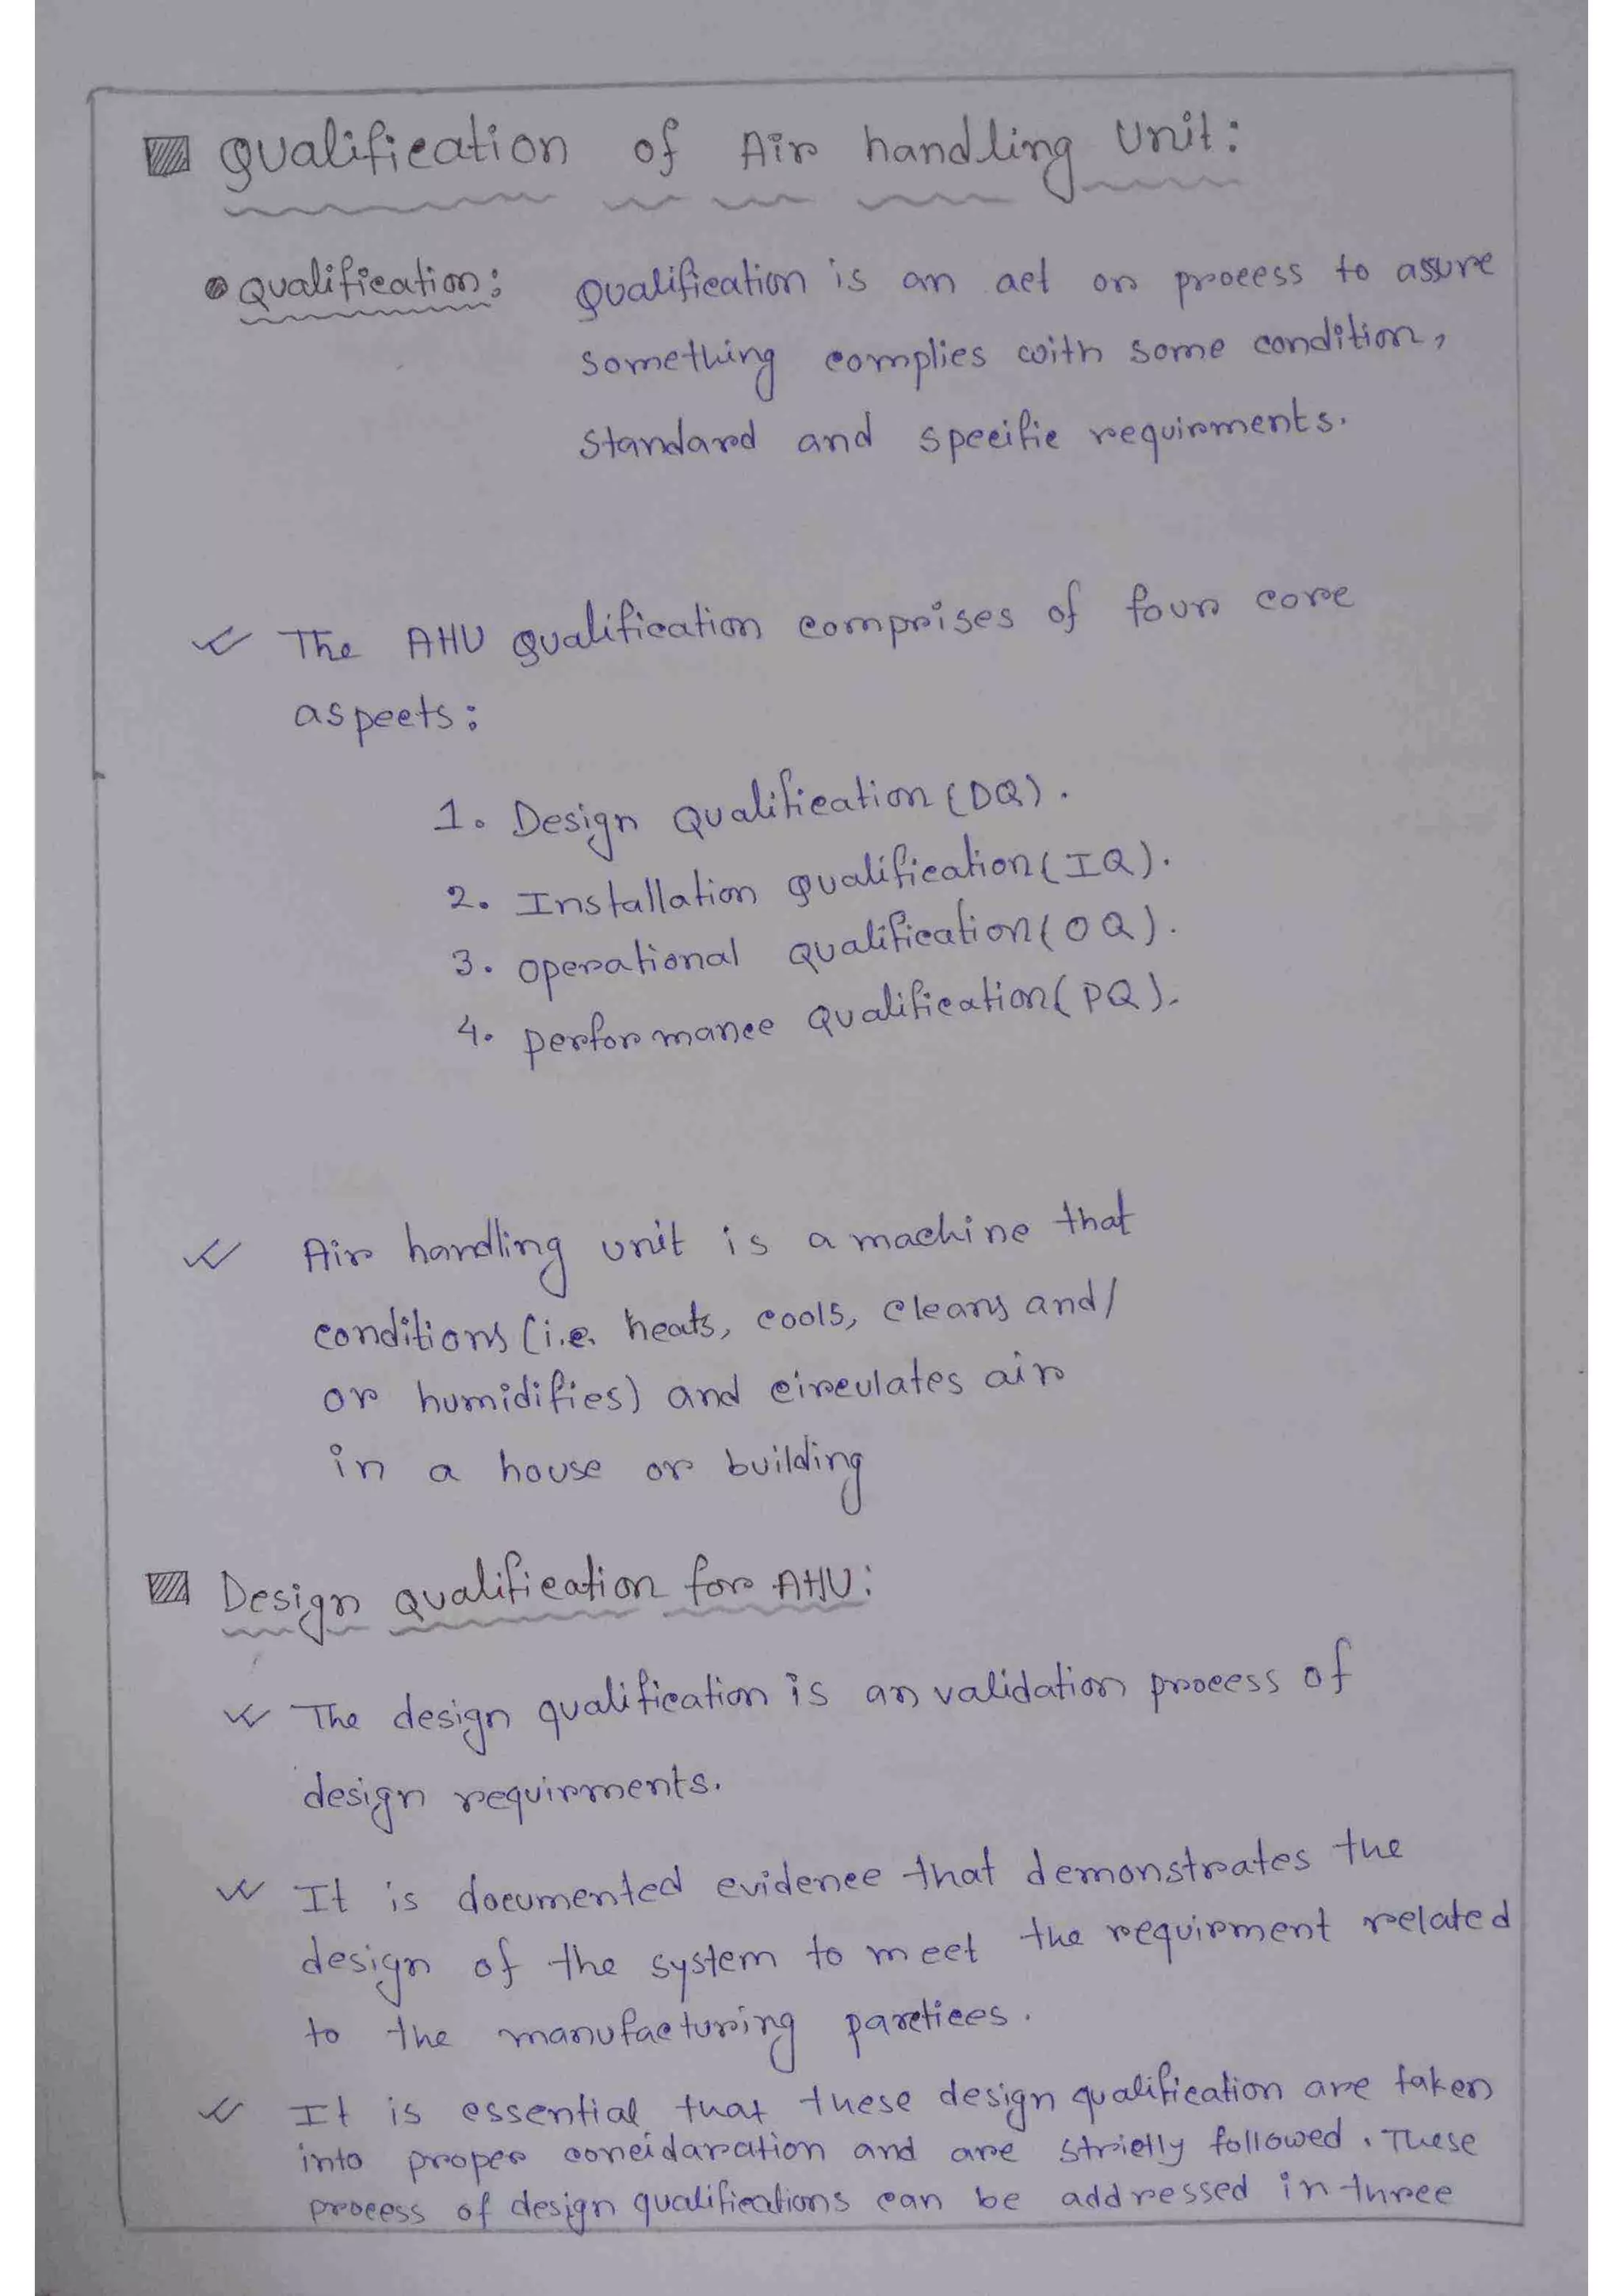 Qualification of Air handling Unit:
Qualification: Qualification is an act or process to assure
something complies with some condition,
Standard and specific requirments.
The AHU Qualification comprises of four core
aspects:
1. Design Qualification (DQ).
2. Installation Qualification (IQ).
3. operational Qualification (OQ).
4. performance Qualification (PQ).
Air handling unit is a machine that
conditions (i.e. heats, cools, cleans and/
or humidifies) and circulates air
in a house or building
Design Qualification for AHU:
The design qualification is an validation process of
design requirments.
It is documented evidence that demonstrates the
design of the system to meet the requirment related
to the manufacturing parctices.
It is essential that these design qualification are taken
into proper concidaration and are strictly followed. These
process of design qualifications can be addressed in three